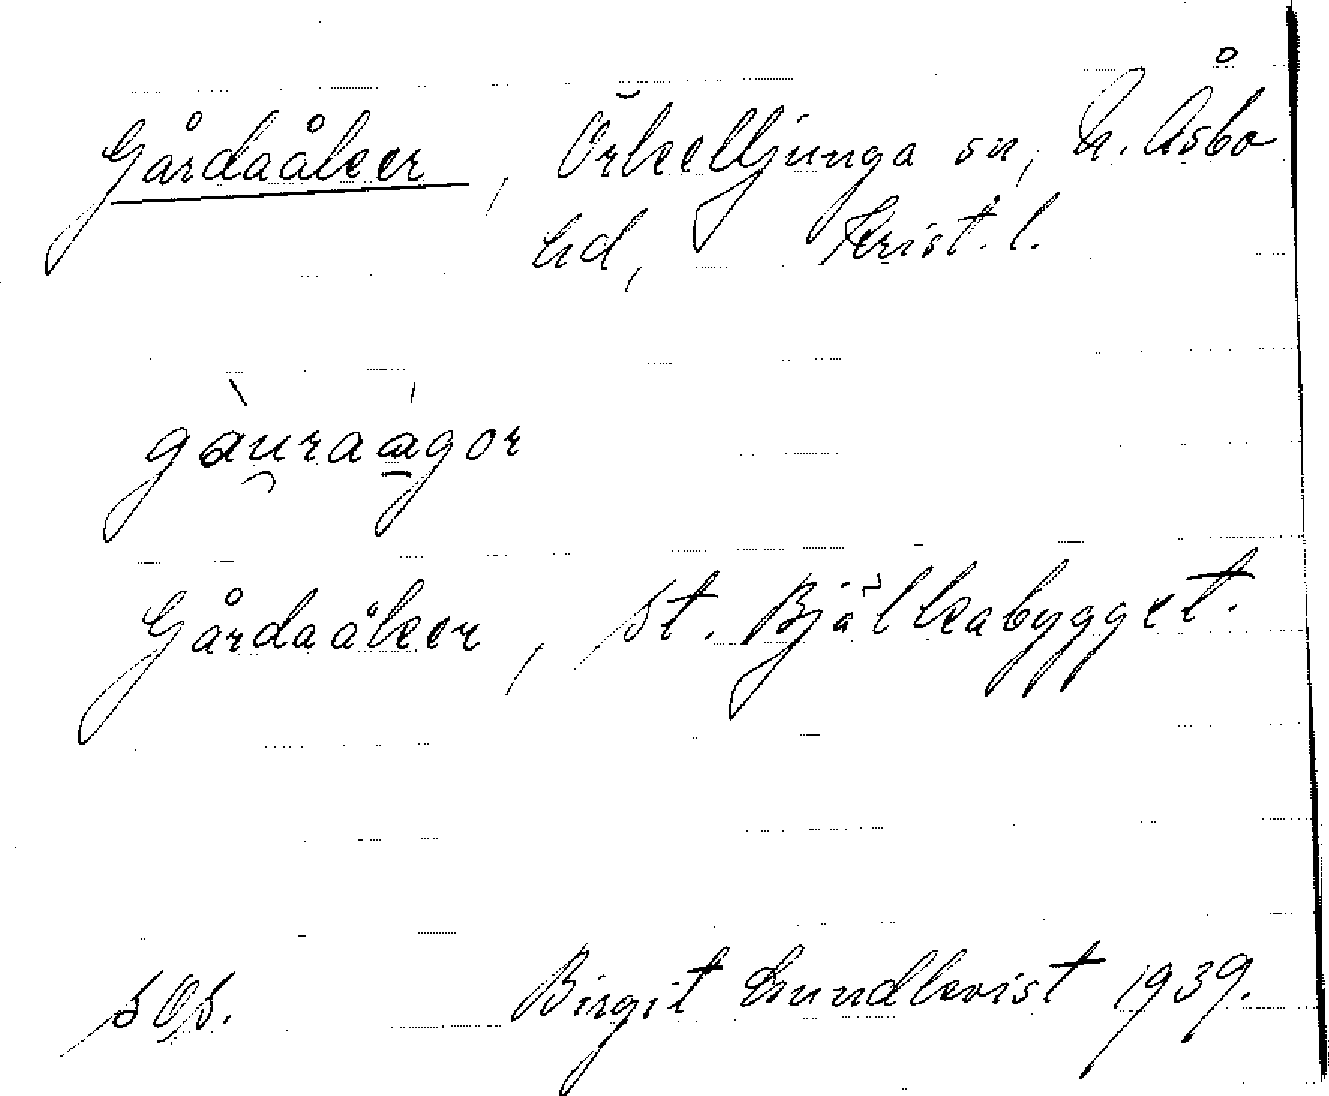 Gårdaåker, Örkelljunga sn, N. Åsbo
hd, Krist. l.
gàu̯raa̠̍gor
Gårdaåker, St. Bjälkabygget.
SOS. Birgit Lundkvist 1939.